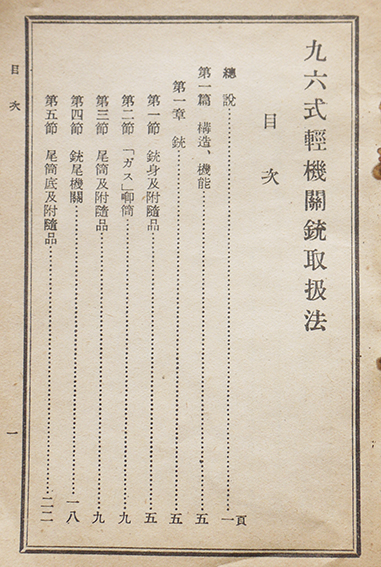 九六式輕機關銃取扱法
目次
總說……一頁
第一篇 構造、機能……五
第一章 銃……五
第一節 銃身及附隨品……五
第二節 「ガス」喞筒……九
第三節 尾筒及附隨品……九
第四節 銃尾機關……一八
第五節 尾筒底及附隨品……二二
目次
一